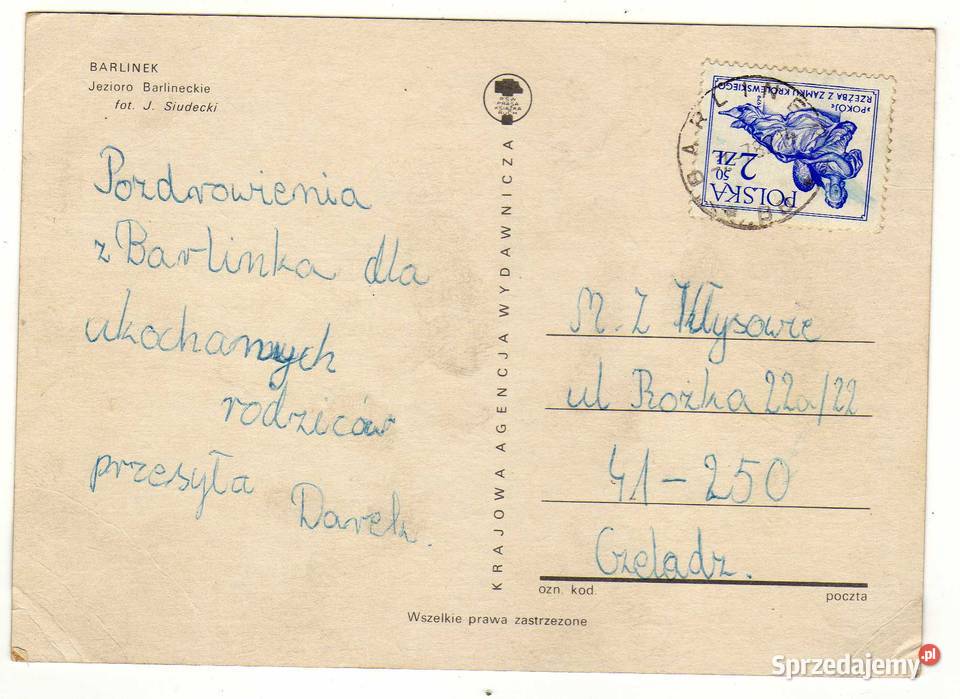 BARLINEK
Jezioro Barlineckie
fot. J. Siudecki
Pozdrowienia
z Barlinka dla
ukochanych
rodziców
przesyła
Darek.
RSW
PRASA
KSIĄŻKA
RUCH
KRAJOWA AGENCJA WYDAWNICZA
POLSKA
50
2 ZŁ
»POKÓJ«
RZEŹBA Z ZAMKU KRÓLEWSKIEGO
BARLINEK
M. Z Kłysowie
ul Rożka 22a/22
41-250
Czeladz.
ozn. kod.
poczta
Wszelkie prawa zastrzezone
Sprzedajemy.pl